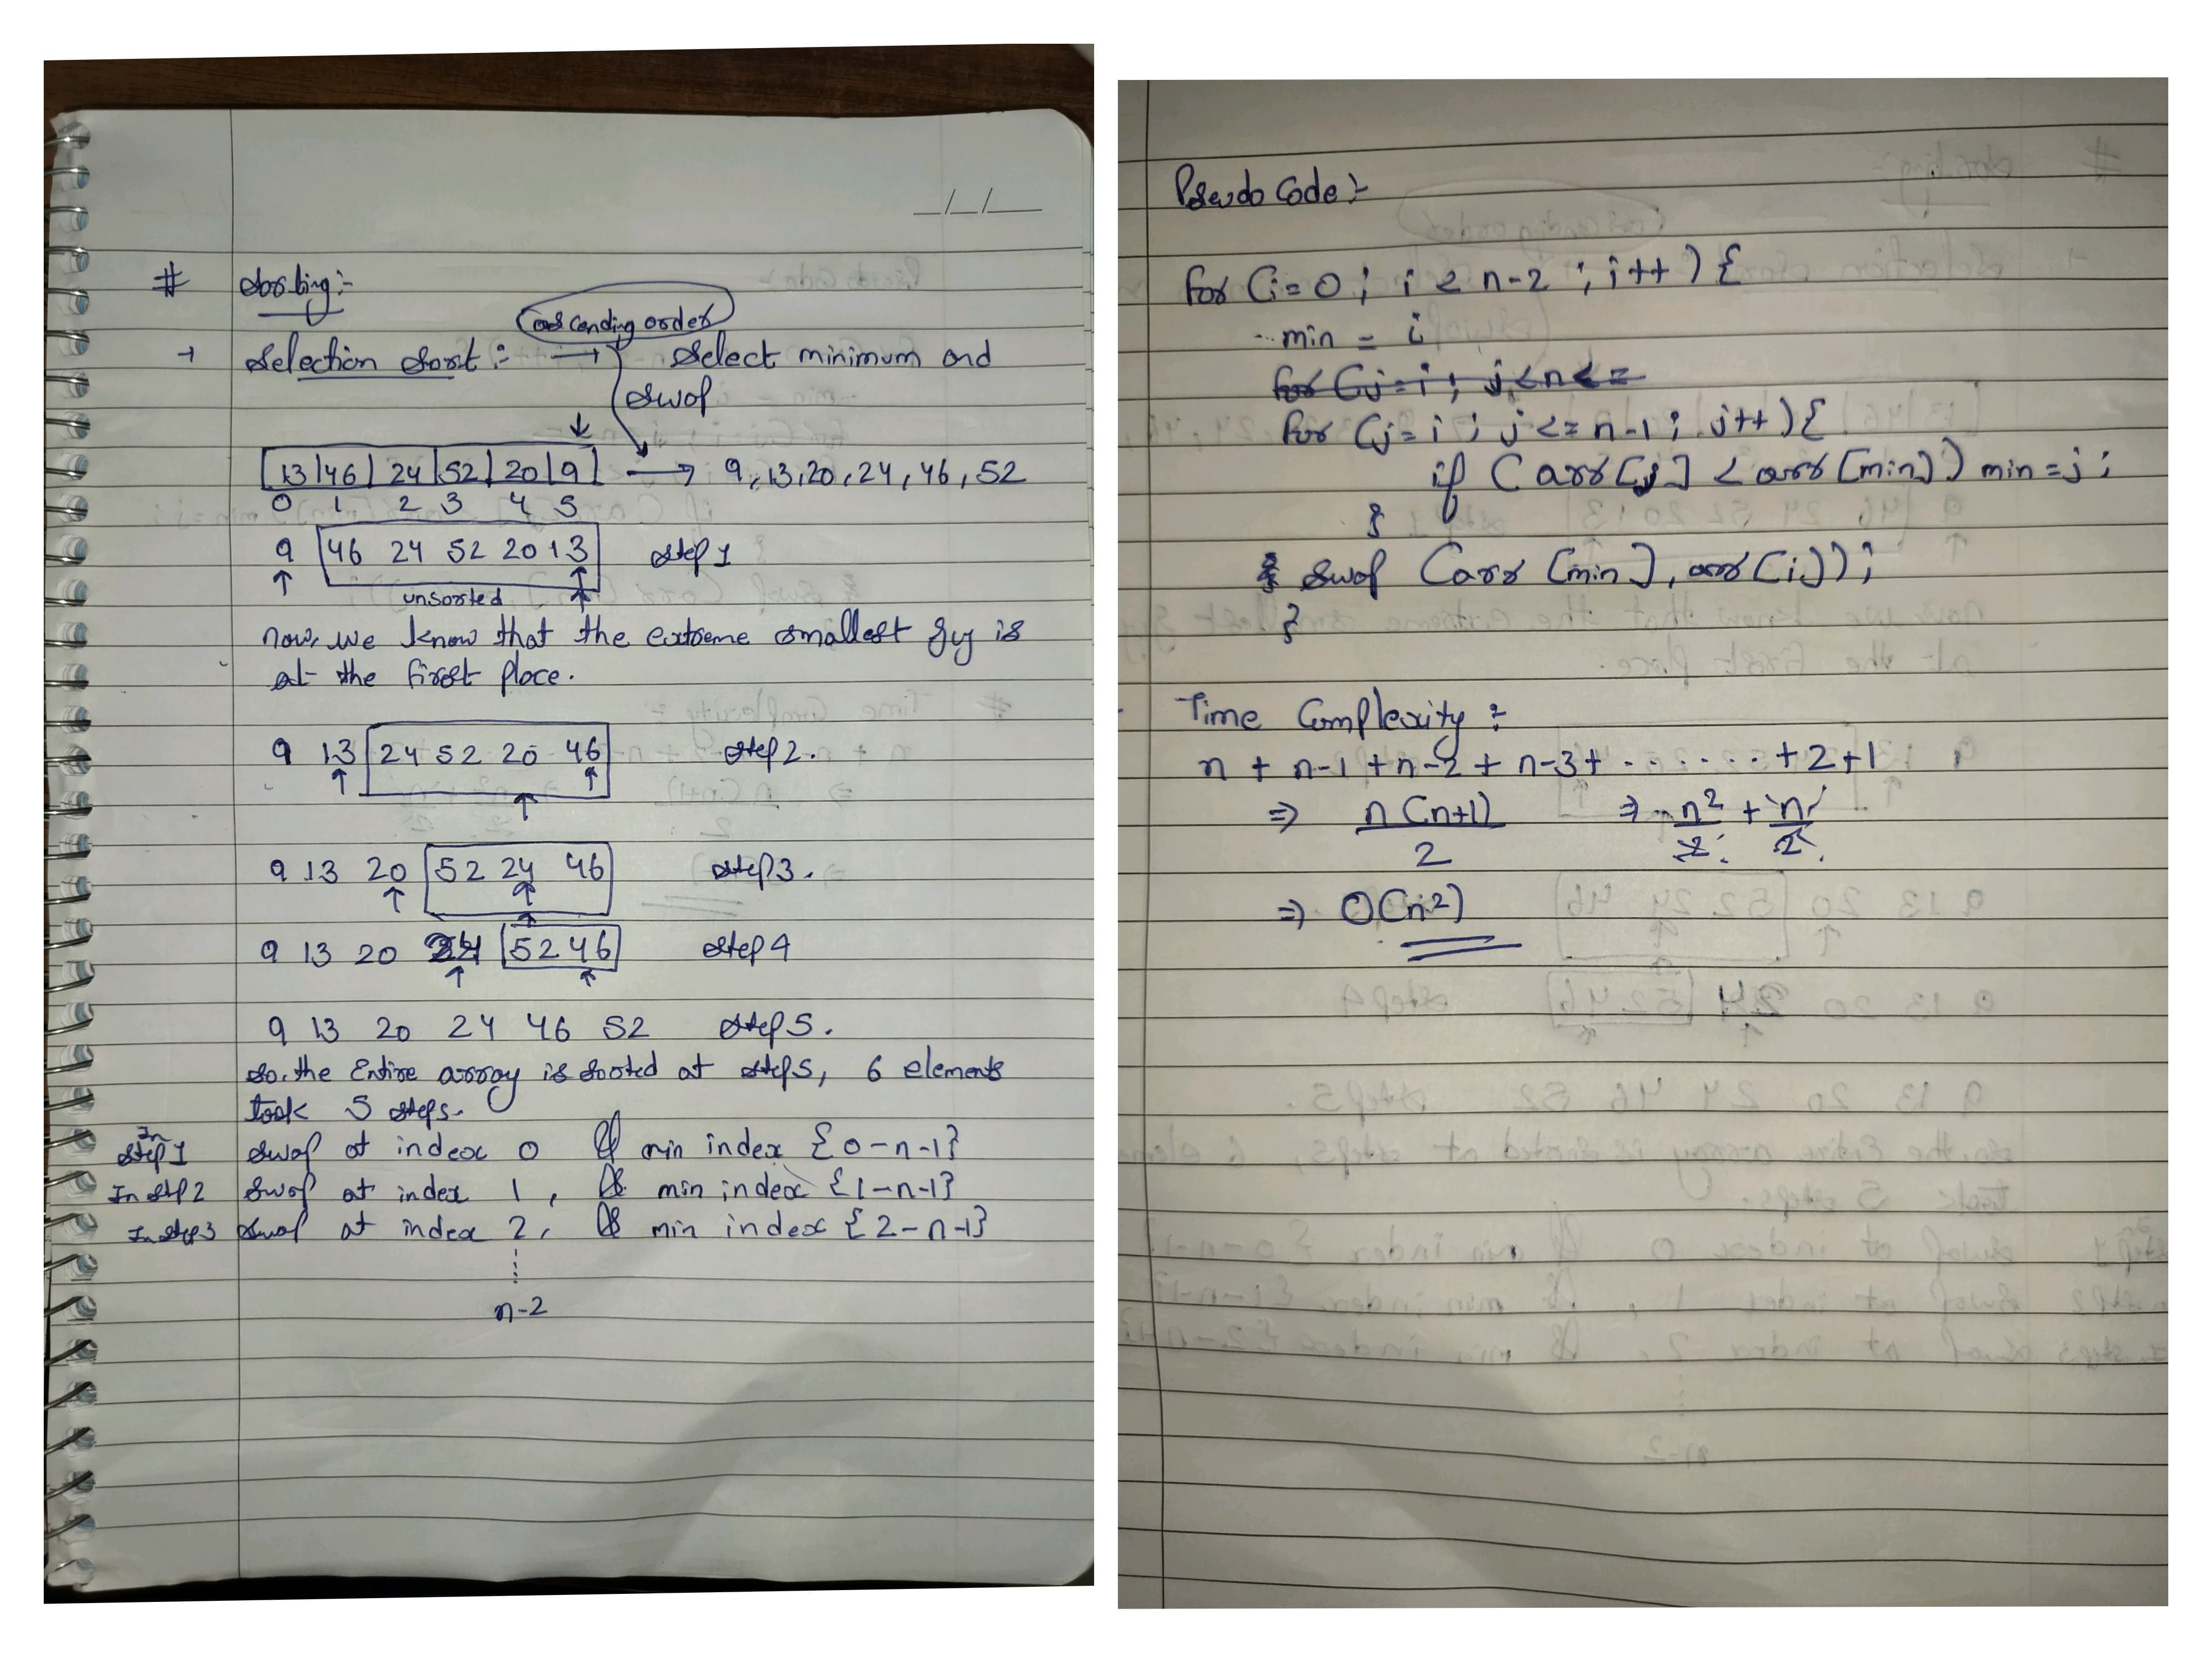 _/_/__
# Sorting:-
(ascending order)
→ Selection Sort: → Select minimum and
swap
[13|46|24|52|20|9] → 9,13,20,24,46,52
0 1 2 3 4 5
9 [46 24 52 20 13] step 1
unsorted
now, we know that the extreme smallest guy is
at the first place.
9 13 [24 52 20 46] step 2.
9 13 20 [52 24 46] step 3.
9 13 20 24 [52 46] step 4
9 13 20 24 46 52 step 5.
so, the Entire array is sorted at step 5, 6 elements
took 5 steps.
In step 1 swap at index 0 & min index {0-n-1}
In step 2 swap at index 1, & min index {1-n-1}
In step 3 swap at index 2, & min index {2-n-1}
n-2
Pseudo Code:-
for (i=0; i < n-2 ; i++) {
min = i
for (j=i; j<n<=
for (j=i; j<=n-1; j++){
if (arr[j] < arr[min]) min=j;
}
swap (arr[min], arr[i]);
}
Time Complexity:
n + n-1 + n-2 + n-3 + ....... + 2 + 1
⇒ n(n+1)/2 ⇒ n²/2 + n/2
⇒ O(n²)